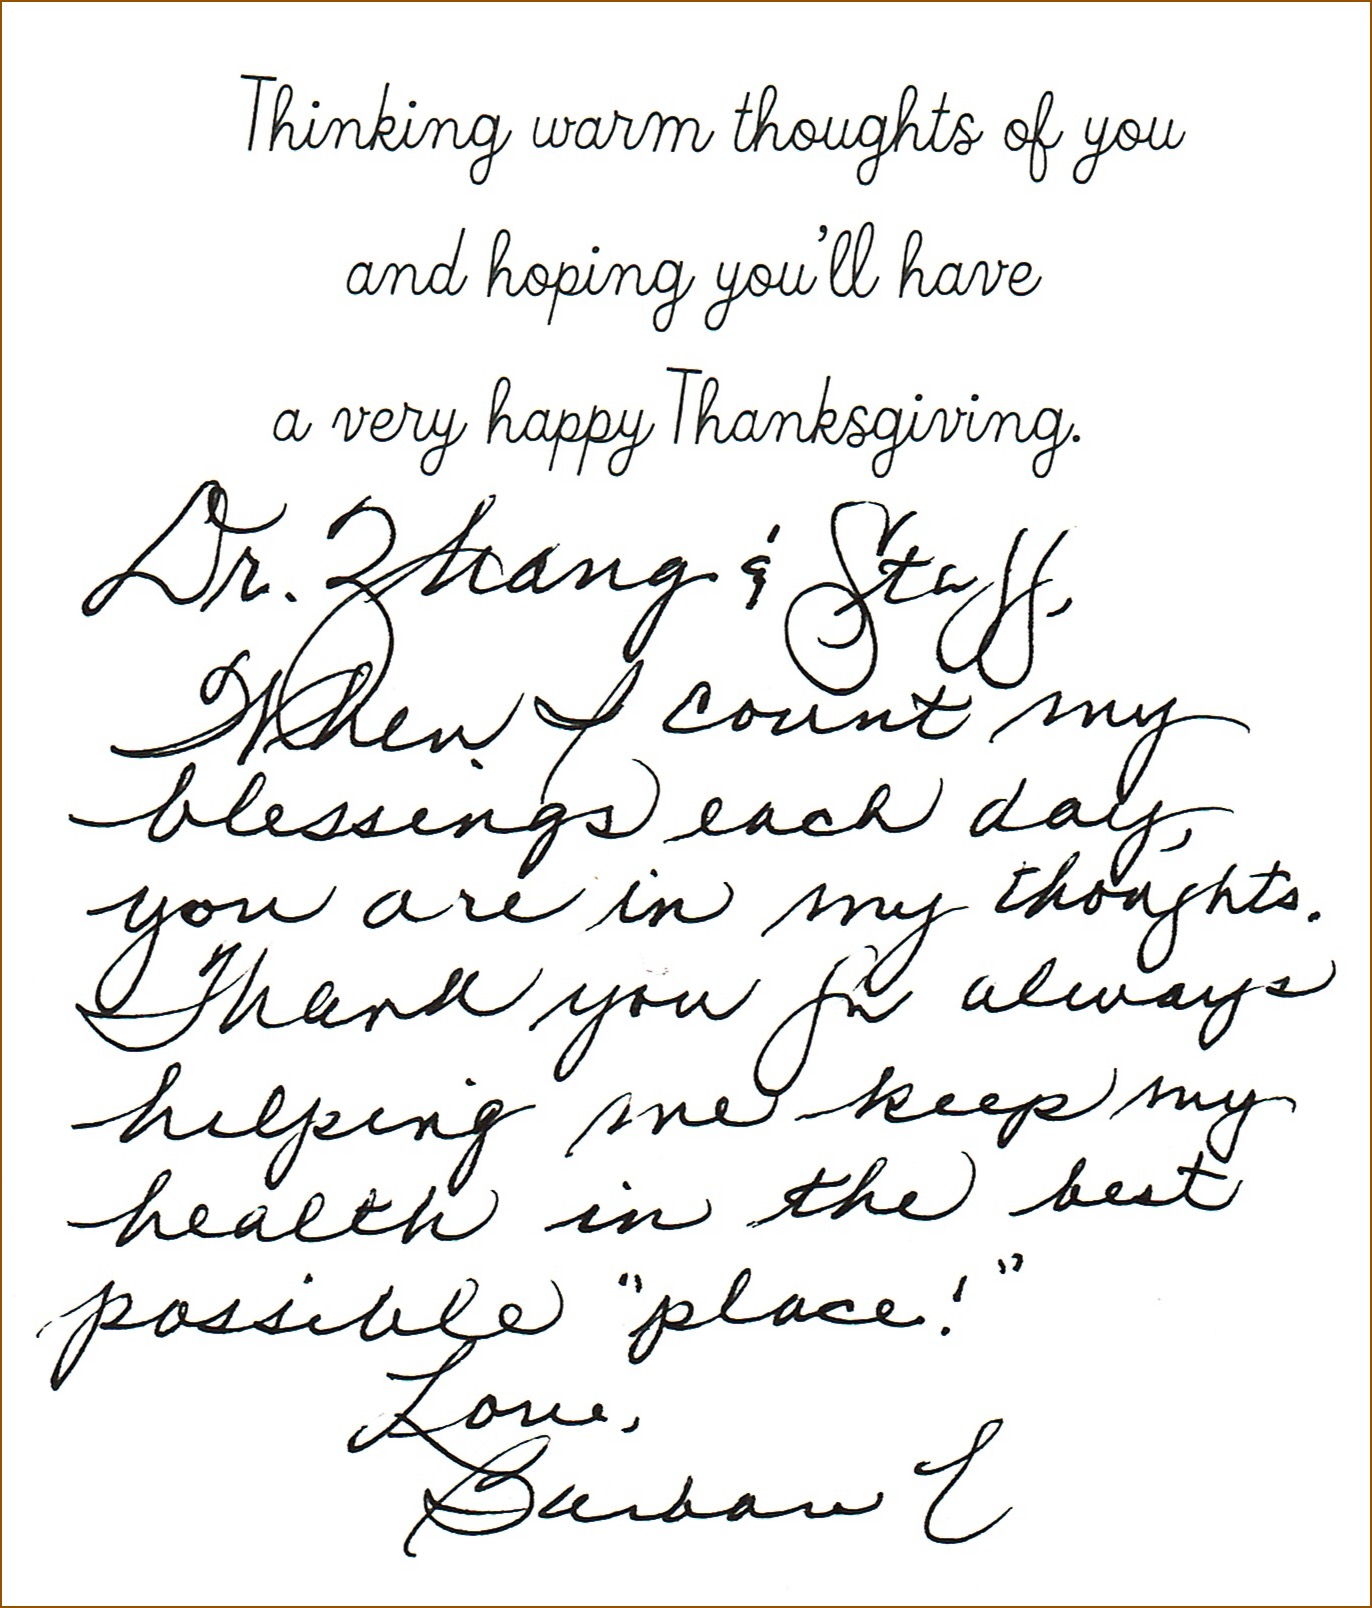 Thinking warm thoughts of you
and hoping you'll have
a very happy Thanksgiving.
Dr. Zhang & Staff,
When I count my
blessings each day,
you are in my thoughts.
Thank you for always
helping me keep my
health in the best
possible "place!"
Love,
Barbara L